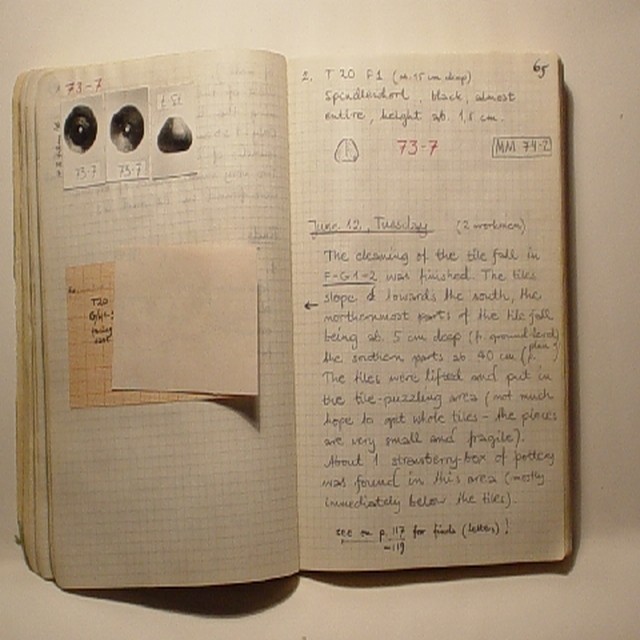 73-7
73-7
73-7
73-7
T20
65
2. T 20 F1 (ab. 15 cm deep)
Spindlewhorl, black, almost
entire, height ab. 1,5 cm.
73-7
MM 74-2
June 12, Tuesday (2 workmen)
The cleaning of the tile fall in
F-G 1-2 was finished. The tiles
slope towards the south, the
northernmost parts of the tile fall
being ab. 5 cm deep (fr. ground level)
the southern parts ab. 40 cm (plan
The tiles were lifted and put in
the tile-puzzling area (not much
hope to get whole tiles - the pieces
are very small and fragile).
About 1 strawberry-box of pottery
was found in this area (mostly
immediately below the tiles).
see on p. 117 for finds (letters)!
-119